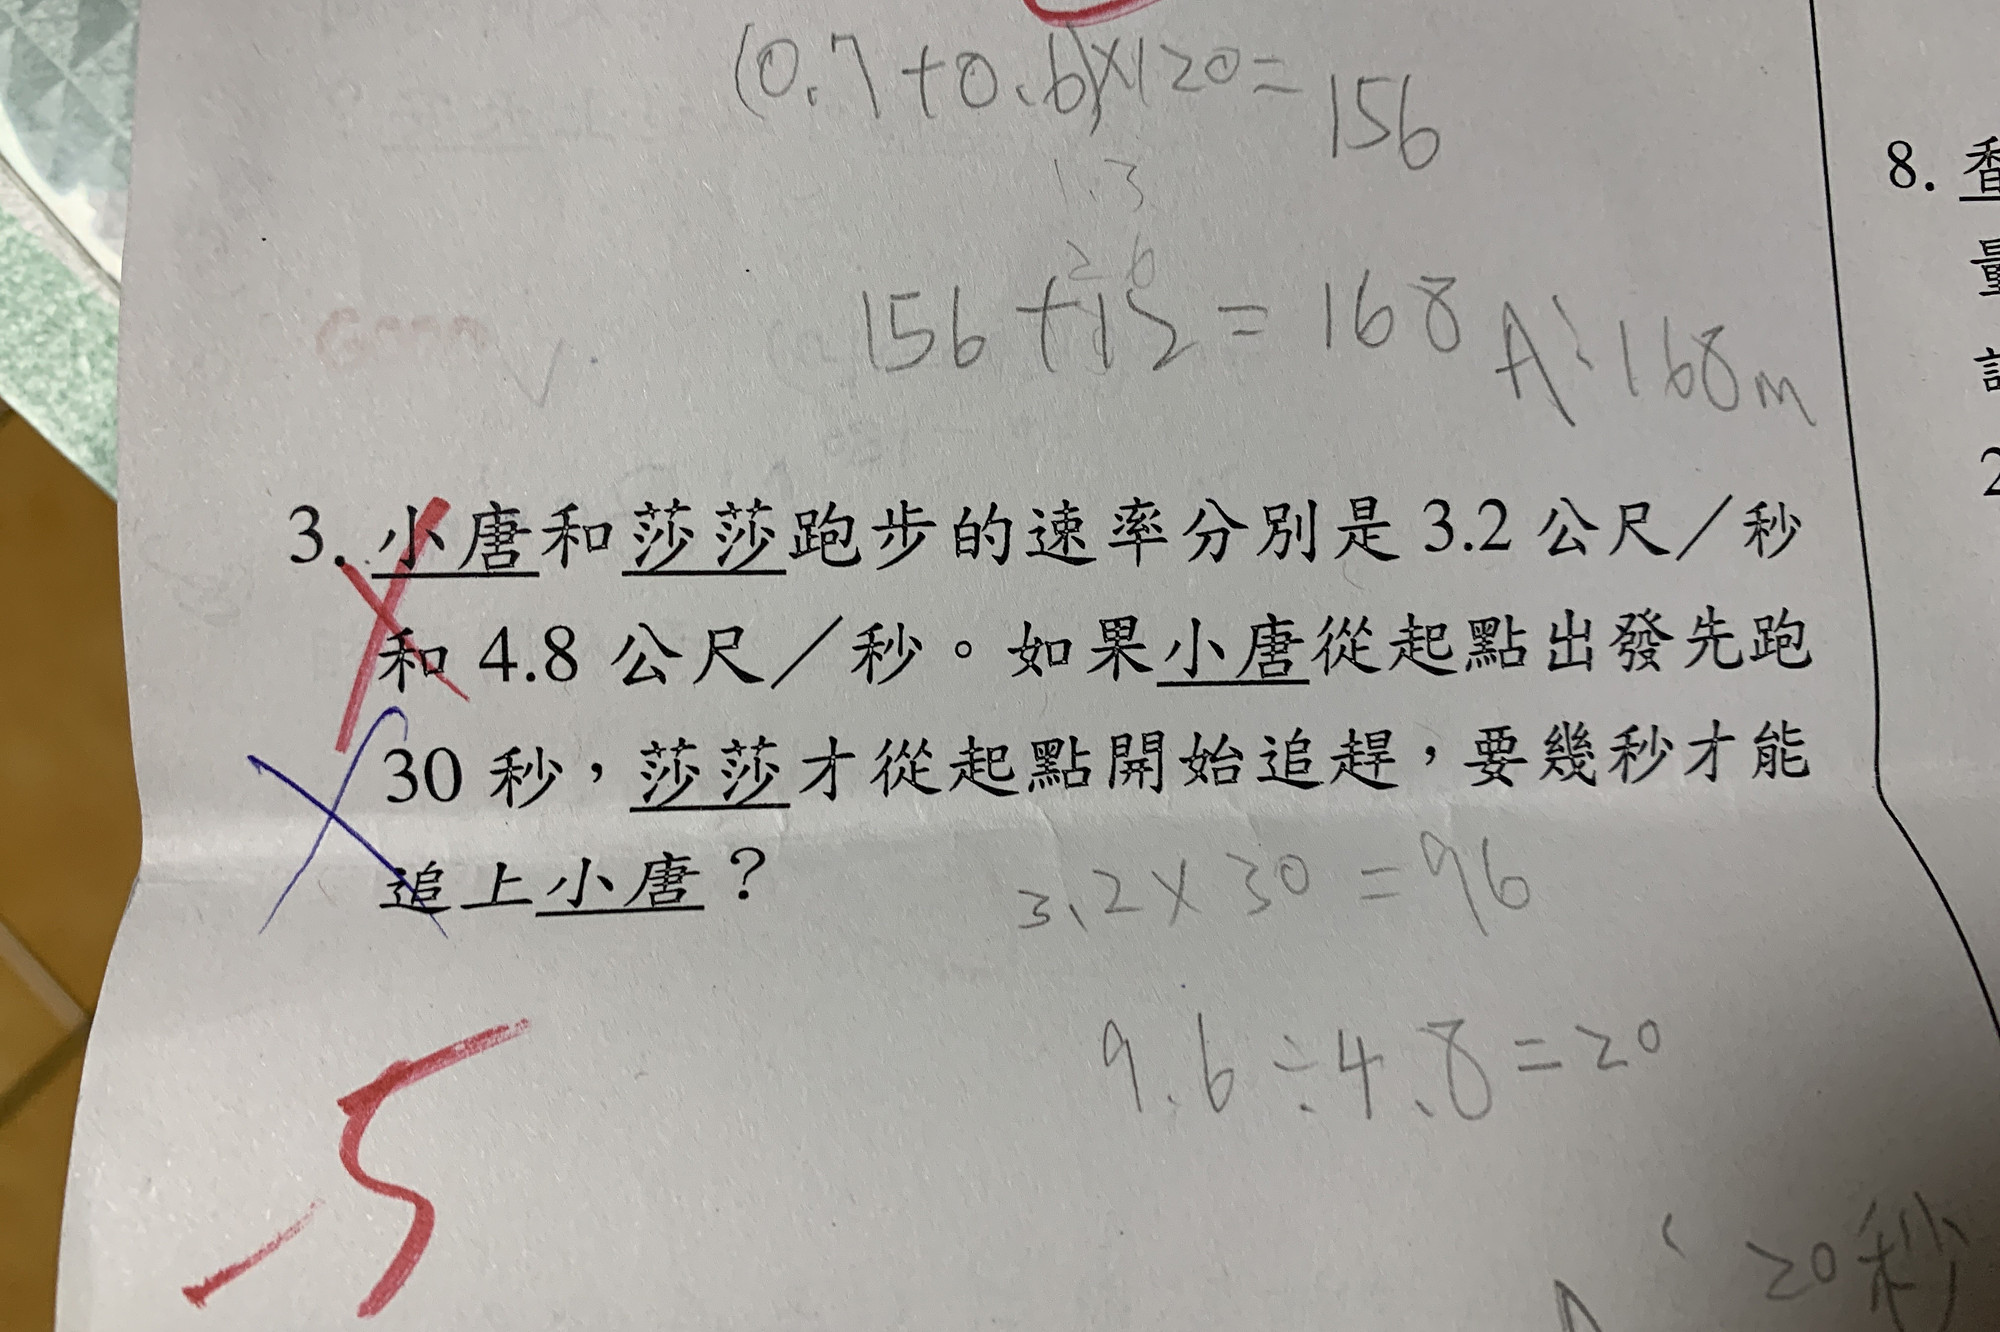 (0.7+0.6)×120=156
1.3
26
156+12=168 A:168m
8.
量
2
3. 小唐和莎莎跑步的速率分別是 3.2 公尺／秒
和 4.8 公尺／秒。如果小唐從起點出發先跑
30 秒，莎莎才從起點開始追趕，要幾秒才能
追上小唐？
3.2×30=96
9.6÷4.8=20
A:20秒
-5